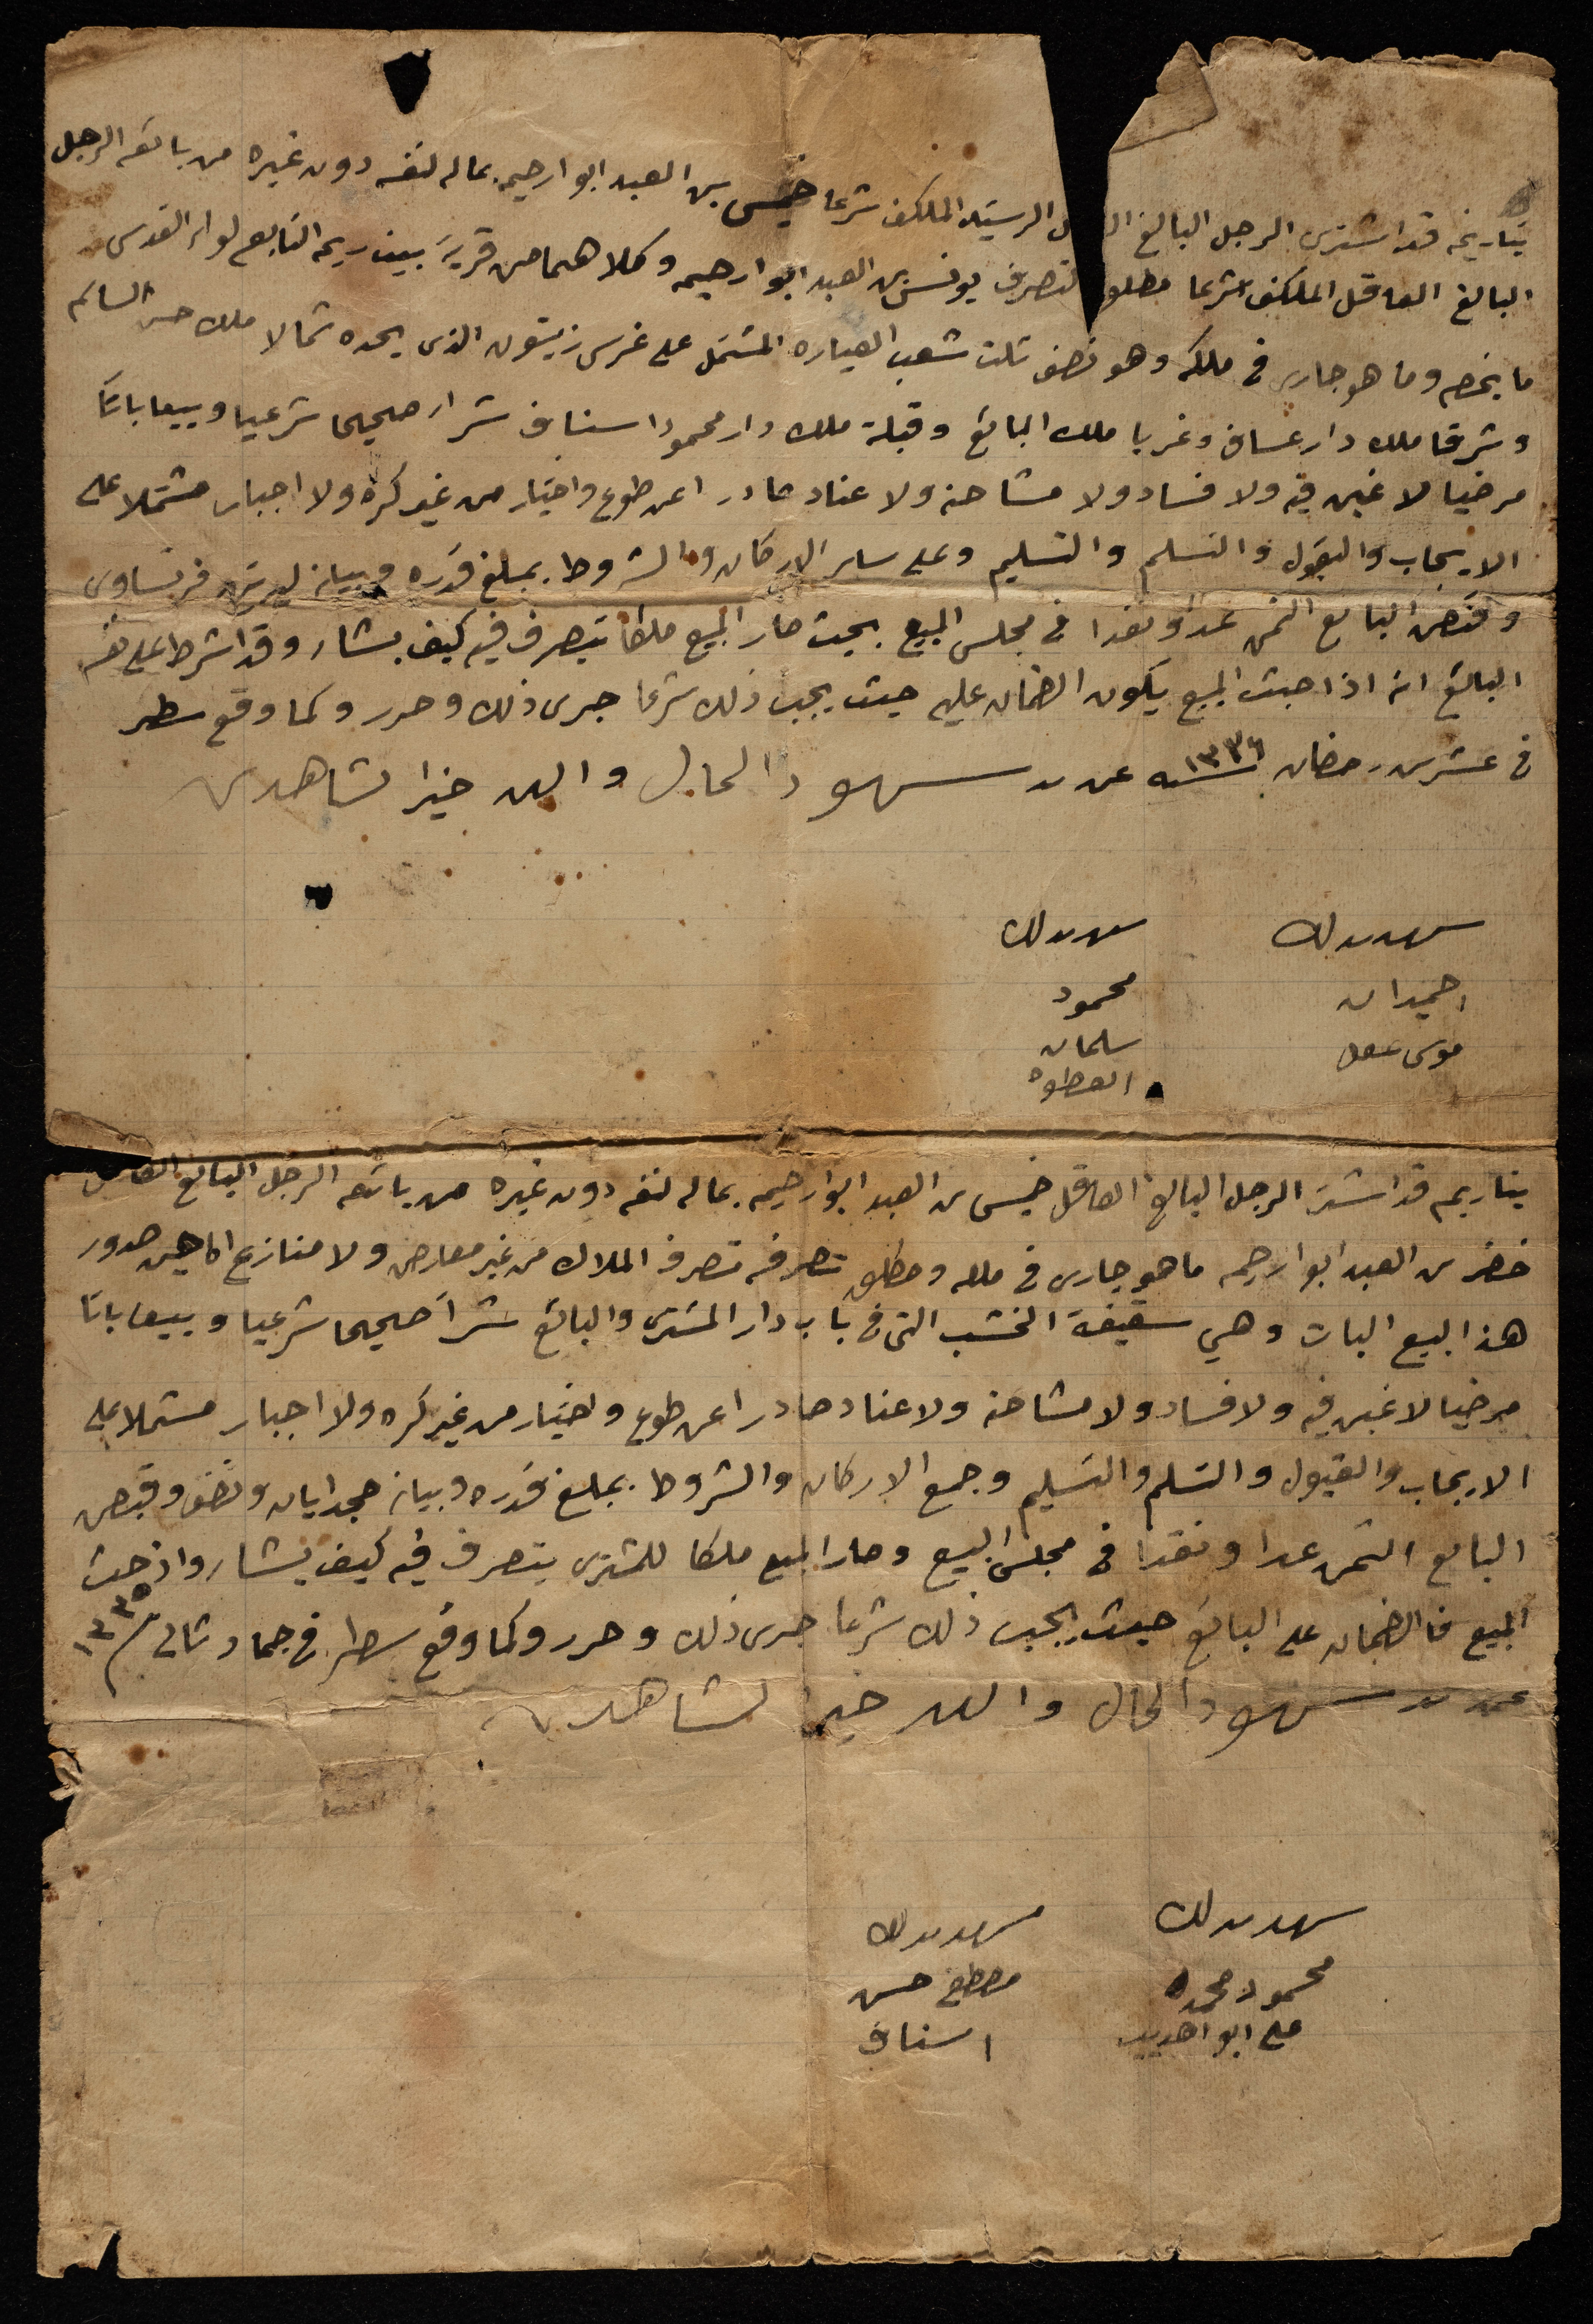 بتاريخه قد اشترى الرجل البالغ الرسيد المكلف شرعا خميس بن العبد ابوارحيمه بماله لنفسه دون غيره من بائعه الرجل
البالغ العاقل المكلف شرعا مطلق التصرف يونس بن العبد ابوارحيمه وكلاهما من قرية بيت ريمه التابع لواء القدس
ما يخصه وما هو جارى فى ملكه وهو نصف ثلث شعب العياره المشتمل على غرس زيتون الذى يحده شمالا ملك حسن السالم
وشرقا ملك دار عساف وغربا ملك البائع وقبلة ملك دار محمود اسناف شراء صحيحا شرعيا وبيعا باتا
مرضيا لا غبن فيه ولا فساد ولا مشاحنه ولا عناد صادرا عن طوع واختيار من غير كره ولا اجبار مشتملا على
الايجاب والقبول والتسلم والتسليم وعلى ساير الاركان والشروط بمبلغ قدره وبيانه ليرتين فرنساوى
وقبض البايع الثمن عدا ونقدا فى مجلس البيع بحيث صار المبيع ملكا يتصرف فيه كيف يشاء وقد اشرط على نفسه
البائع انه اذا حيث المبيع يكون الضمان عليه حيث يجب ذلك شرعا جرى ذلك وحرر وكما وقع سطر
فى عشرين رمضان سنه ١٣٣٦ عن يد شهود الحال والله خير الشاهدين
شهد بذلك
احميدان
موسى
شهد بذلك
محمود
سلمان
العطوه
بتاريخه قد اشترا الرجل البالغ العاقل خميس بن العبد ابوارحيمه بماله لنفسه دون غيره من بائعه الرجل البالغ العاقل
خضر بن العبد ابوارحيمه ما هو جارى فى ملكه ومطلق تصرفه تصرف الملاك من غير معارض ولا منازع الى حين صدور
هذا البيع البات وهي سقيفة الخشب التى فى باب دار المشترى والبائع شراً صحيحا شرعيا وبيعا باتا
مرضيا لا غبن فيه ولا فساد ولا مشاحنه ولا عناد صادرا عن طوع واختيار من غير كره ولا اجبار مشتملا على
الايجاب والقبول والتسلم والتسليم وجمع الاركان والشروط بمبلغ قدره وبيانه مجدايان ونصف وقبض
البايع الثمن عدا ونقدا فى مجلس البيع وصار المبيع ملكا للمشترى يتصرف فيه كيف يشاء واذ حيث
المبيع فا الضمان على البائع حيث يجب ذلك شرعا جرى ذلك وحرر وكما وقع سطر فى جماد ثانى سنة ١٣٣٥
عن يد شهود الحال والله خير الشاهدين
شهد بذلك
محمود محمد
على ابو
شهد بذلك
مصطفى حسن
اسناف